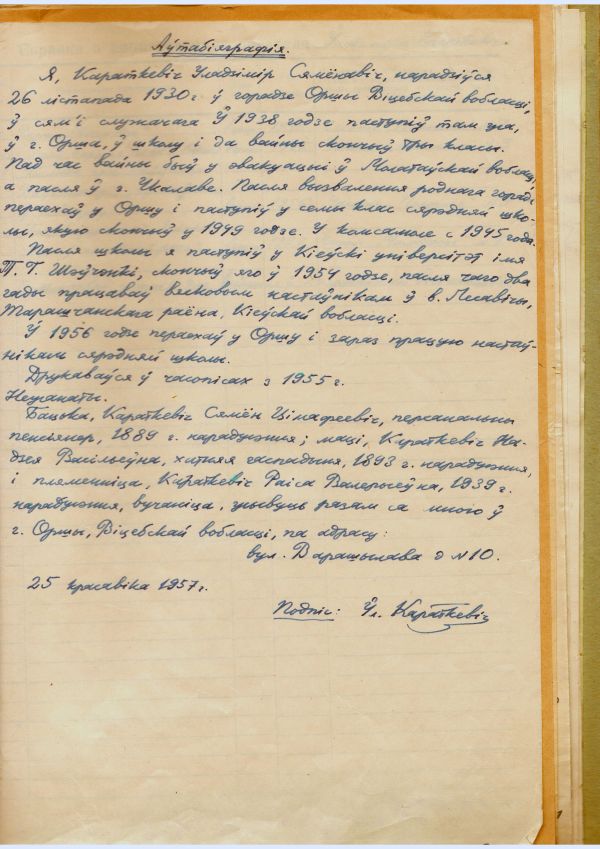 Аўтабіяграфія.
Я, Караткевіч Уладзімір Сямёнавіч, нарадзіўся
26 лістапада 1930 г. ў горадзе Оршы Віцебскай вобласці,
ў сям'і служачага. Ў 1938 годзе паступіў там жа,
ў г. Орша, ў школу і да вайны скончыў тры класы.
Пад час вайны быў у эвакуацыі ў Молатаўскай вобласці,
а пасля ў г. Чкалаве. Пасля вызвалення роднага горада
пераехаў у Оршу і паступіў у семы клас сярэдняй шко-
лы, якую скончыў у 1949 годзе. У комсамоле с 1945 года.
Пасля школы я паступіў у Кіеўскі універсітэт імя
Т. Г. Шэўчэнкі, скончыў яго ў 1954 годзе, пасля чаго два
гады працаваў вясковым настаўнікам ў в. Лесавічы,
Тарашчанскага раёна, Кіеўскай вобласці.
Ў 1956 годзе пераехаў у Оршу і зараз працую настаў-
нікам сярэдняй школы.
Друкаваўся ў часопісах з 1955 г.
Нежанаты.
Бацька, Караткевіч Сямён Цімафеевіч, персанальны
пенсіянер, 1889 г. нараджэння; маці, Караткевіч На-
дзея Васільеўна, хатняя гаспадыня, 1893 г. нараджэння,
і пляменніца, Караткевіч Раіса Валерыеўна, 1939 г.
нараджэння, вучаніца, жывуць разам са мною ў
г. Оршы, Віцебскай вобласці, па адрасу:
вул. Варашылава д № 10.
25 красавіка 1957 г.
Подпіс: Ўл. Караткевіч